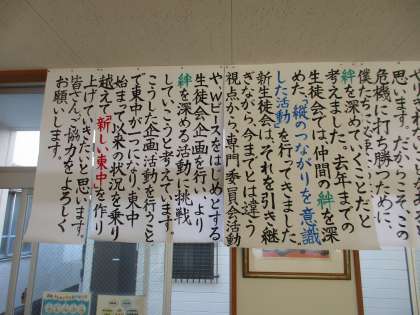 思います。だからこそ、この
危機に打ち勝つために、
僕たちに必要
絆を深めていくことだと
考えました。去年までの
生徒会では、仲間の絆を深
めた、「縦のつながりを意識
した活動」を行ってきました。
新生徒会は、それを引き継
ぎながら、今までとは違う
視点から、専門委員会活動
や、Wピースをはじめとする
生徒会企画を行い、より
絆を深める活動に挑戦
していこうと考えています。
こうした企画活動を行うこと
で東中が一つになり、東中
始まって以来の状況を乗り
越えて「新しい東中」を作り
上げていきたいと思います。
皆さんご協力をよろしく
お願いします。